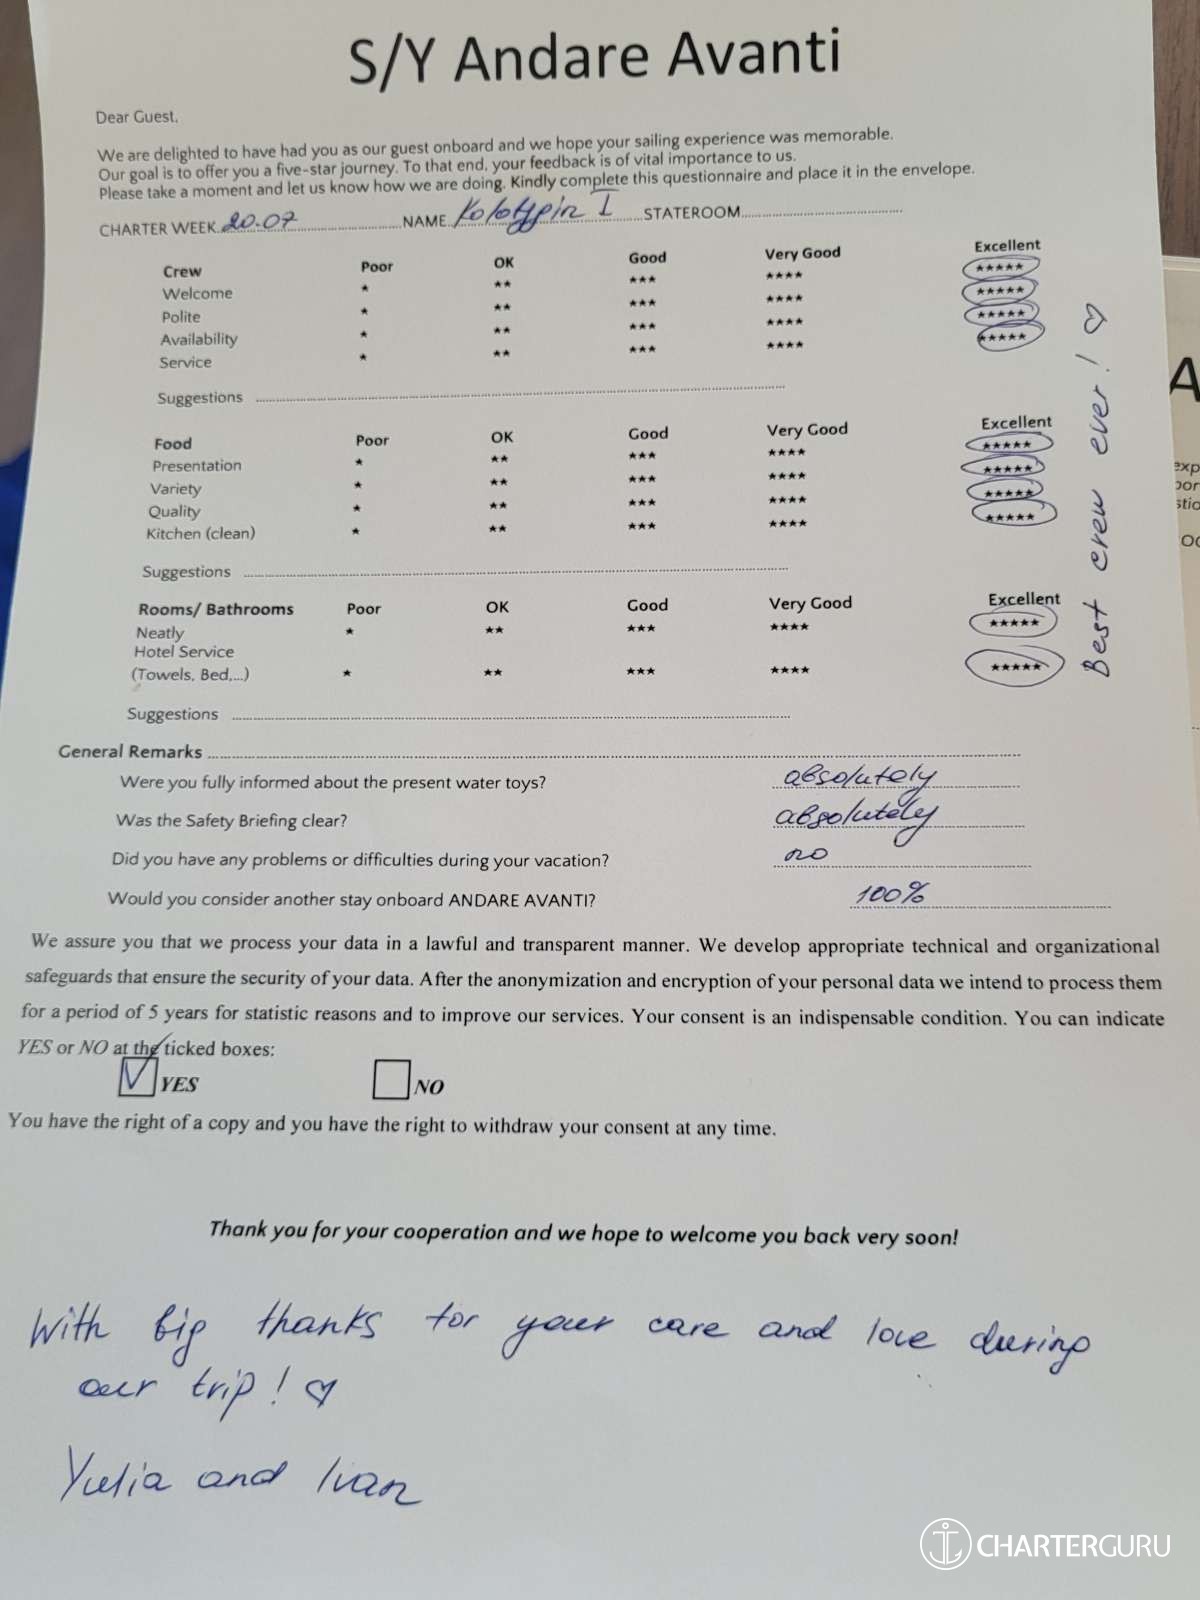 S/Y Andare Avanti
Dear Guest,
We are delighted to have had you as our guest onboard and we hope your sailing experience was memorable.
Our goal is to offer you a five-star journey. To that end, your feedback is of vital importance to us.
Please take a moment and let us know how we are doing. Kindly complete this questionnaire and place it in the envelope.
CHARTER WEEK 20.07 NAME Kolotypin I STATEROOM
Crew Poor OK Good Very Good Excellent
Welcome * ** *** **** *****
Polite * ** *** **** *****
Availability * ** *** **** *****
Service * ** *** **** *****
Suggestions
Food Poor OK Good Very Good Excellent
Presentation * ** *** **** *****
Variety * ** *** **** *****
Quality * ** *** **** *****
Kitchen (clean) * ** *** **** *****
Suggestions
Rooms/ Bathrooms Poor OK Good Very Good Excellent
Neatly * ** *** **** *****
Hotel Service
(Towels, Bed,...) * ** *** **** *****
Suggestions
Best crew ever! ♡
General Remarks
Were you fully informed about the present water toys? absolutely
Was the Safety Briefing clear? absolutely
Did you have any problems or difficulties during your vacation? no
Would you consider another stay onboard ANDARE AVANTI? 100%
We assure you that we process your data in a lawful and transparent manner. We develop appropriate technical and organizational
safeguards that ensure the security of your data. After the anonymization and encryption of your personal data we intend to process them
for a period of 5 years for statistic reasons and to improve our services. Your consent is an indispensable condition. You can indicate
YES or NO at the ticked boxes:
YES NO
You have the right of a copy and you have the right to withdraw your consent at any time.
Thank you for your cooperation and we hope to welcome you back very soon!
With big thanks for your care and love during
our trip! ♡
Yulia and Ivan
CHARTERGURU